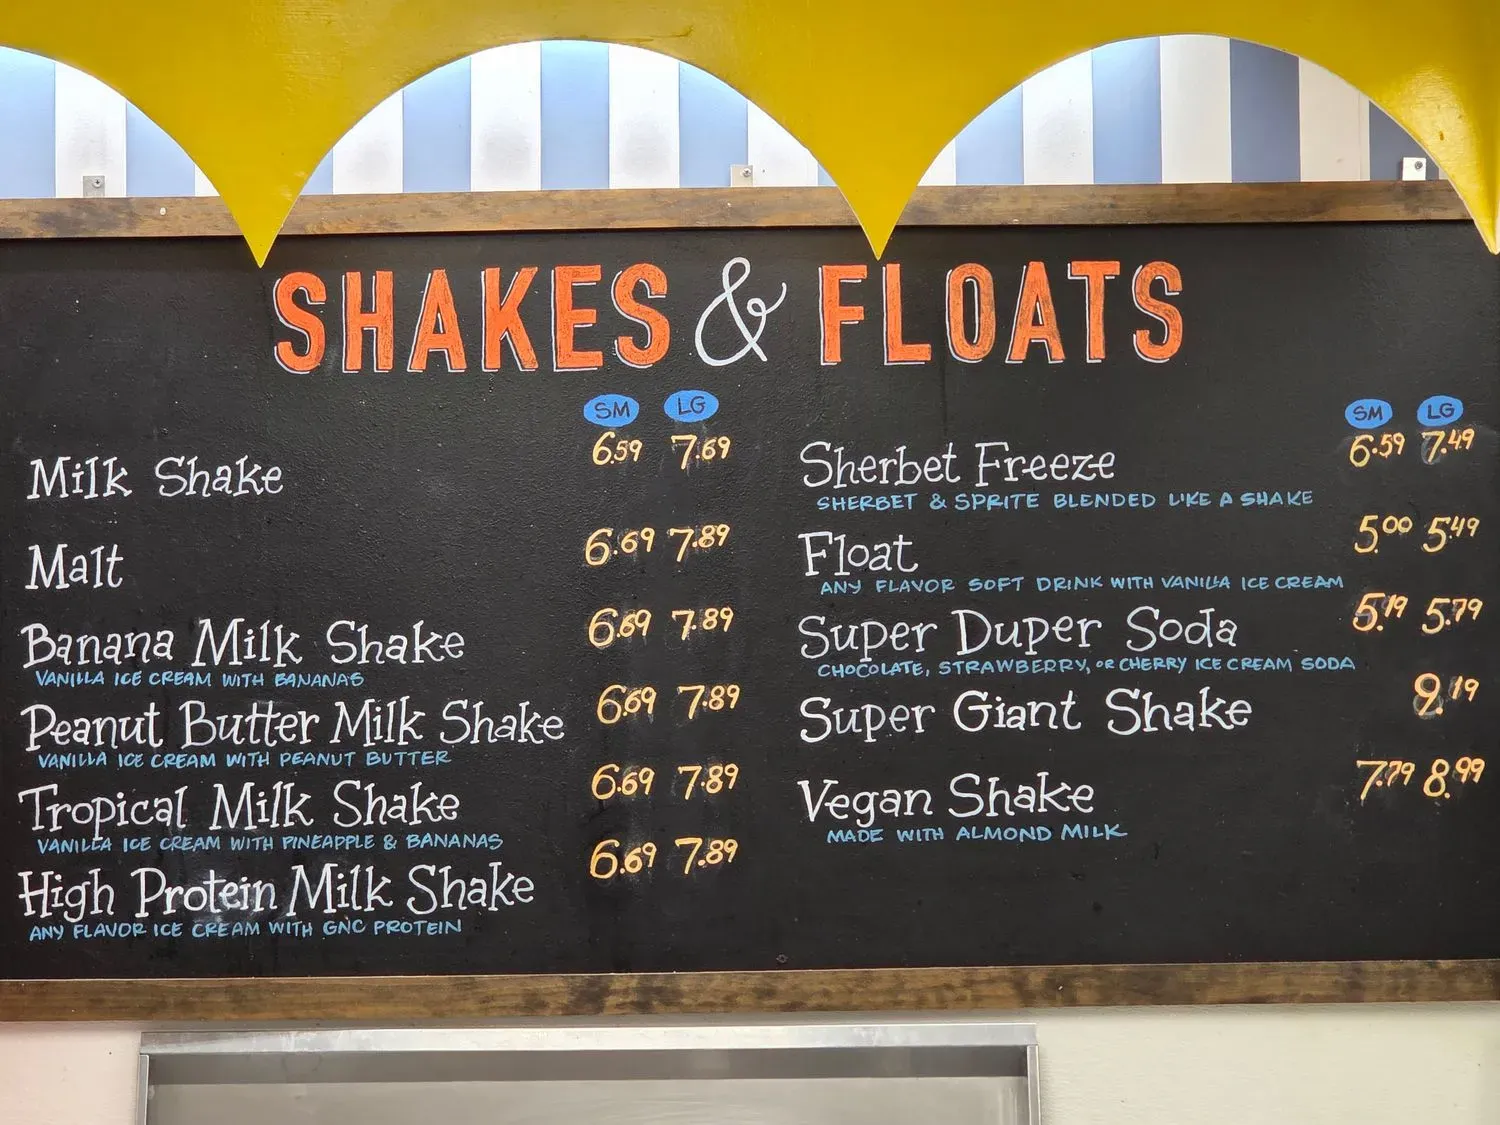 SHAKES & FLOATS
SM LG
Milk Shake 6.59 7.69
Malt 6.69 7.89
Banana Milk Shake 6.69 7.89
VANILLA ICE CREAM WITH BANANAS
Peanut Butter Milk Shake 6.69 7.89
VANILLA ICE CREAM WITH PEANUT BUTTER
Tropical Milk Shake 6.69 7.89
VANILLA ICE CREAM WITH PINEAPPLE & BANANAS
High Protein Milk Shake 6.69 7.89
ANY FLAVOR ICE CREAM WITH GNC PROTEIN
SM LG
Sherbet Freeze 6.59 7.49
SHERBET & SPRITE BLENDED LIKE A SHAKE
Float 5.00 5.49
ANY FLAVOR SOFT DRINK WITH VANILLA ICE CREAM
Super Duper Soda 5.19 5.79
CHOCOLATE, STRAWBERRY, OR CHERRY ICE CREAM SODA
Super Giant Shake 9.19
Vegan Shake 7.79 8.99
MADE WITH ALMOND MILK